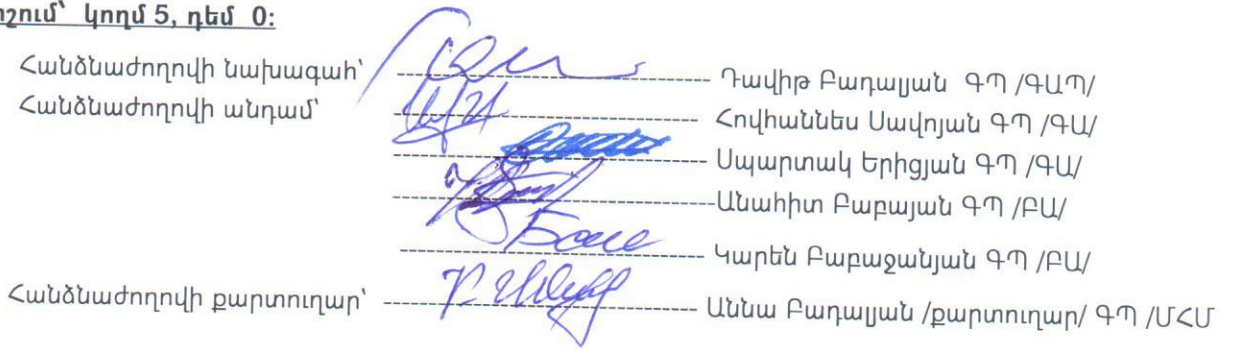 որոշում՝ կողմ 5, դեմ 0:
Հանձնաժողովի նախագահ՝ Դավիթ Բադալյան ԳՊ /ԳԱՊ/
Հանձնաժողովի անդամ՝ Հովհաննես Սավոյան ԳՊ /ԳԱ/
Սպարտակ Երիցյան ԳՊ /ԳԱ/
Անահիտ Բաբայան ԳՊ /ԲԱ/
Կարեն Բաբաջանյան ԳՊ /ԲԱ/
Հանձնաժողովի քարտուղար՝ Աննա Բադալյան /քարտուղար/ ԳՊ /ՄՀՄ